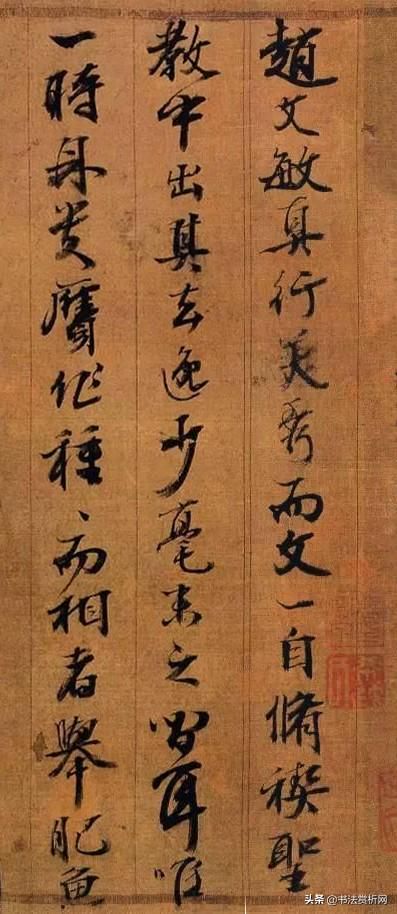 趙文敏真行美秀而文一自脩禊聖
教中出其去逸少毫末之間耳唯
一時身貴贗作種〻而相者舉肥魚
头条 @书法赏析网